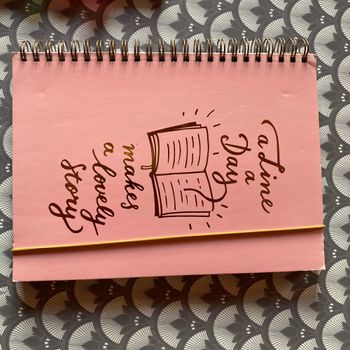 a Line
a
Day
makes
a lovely
story